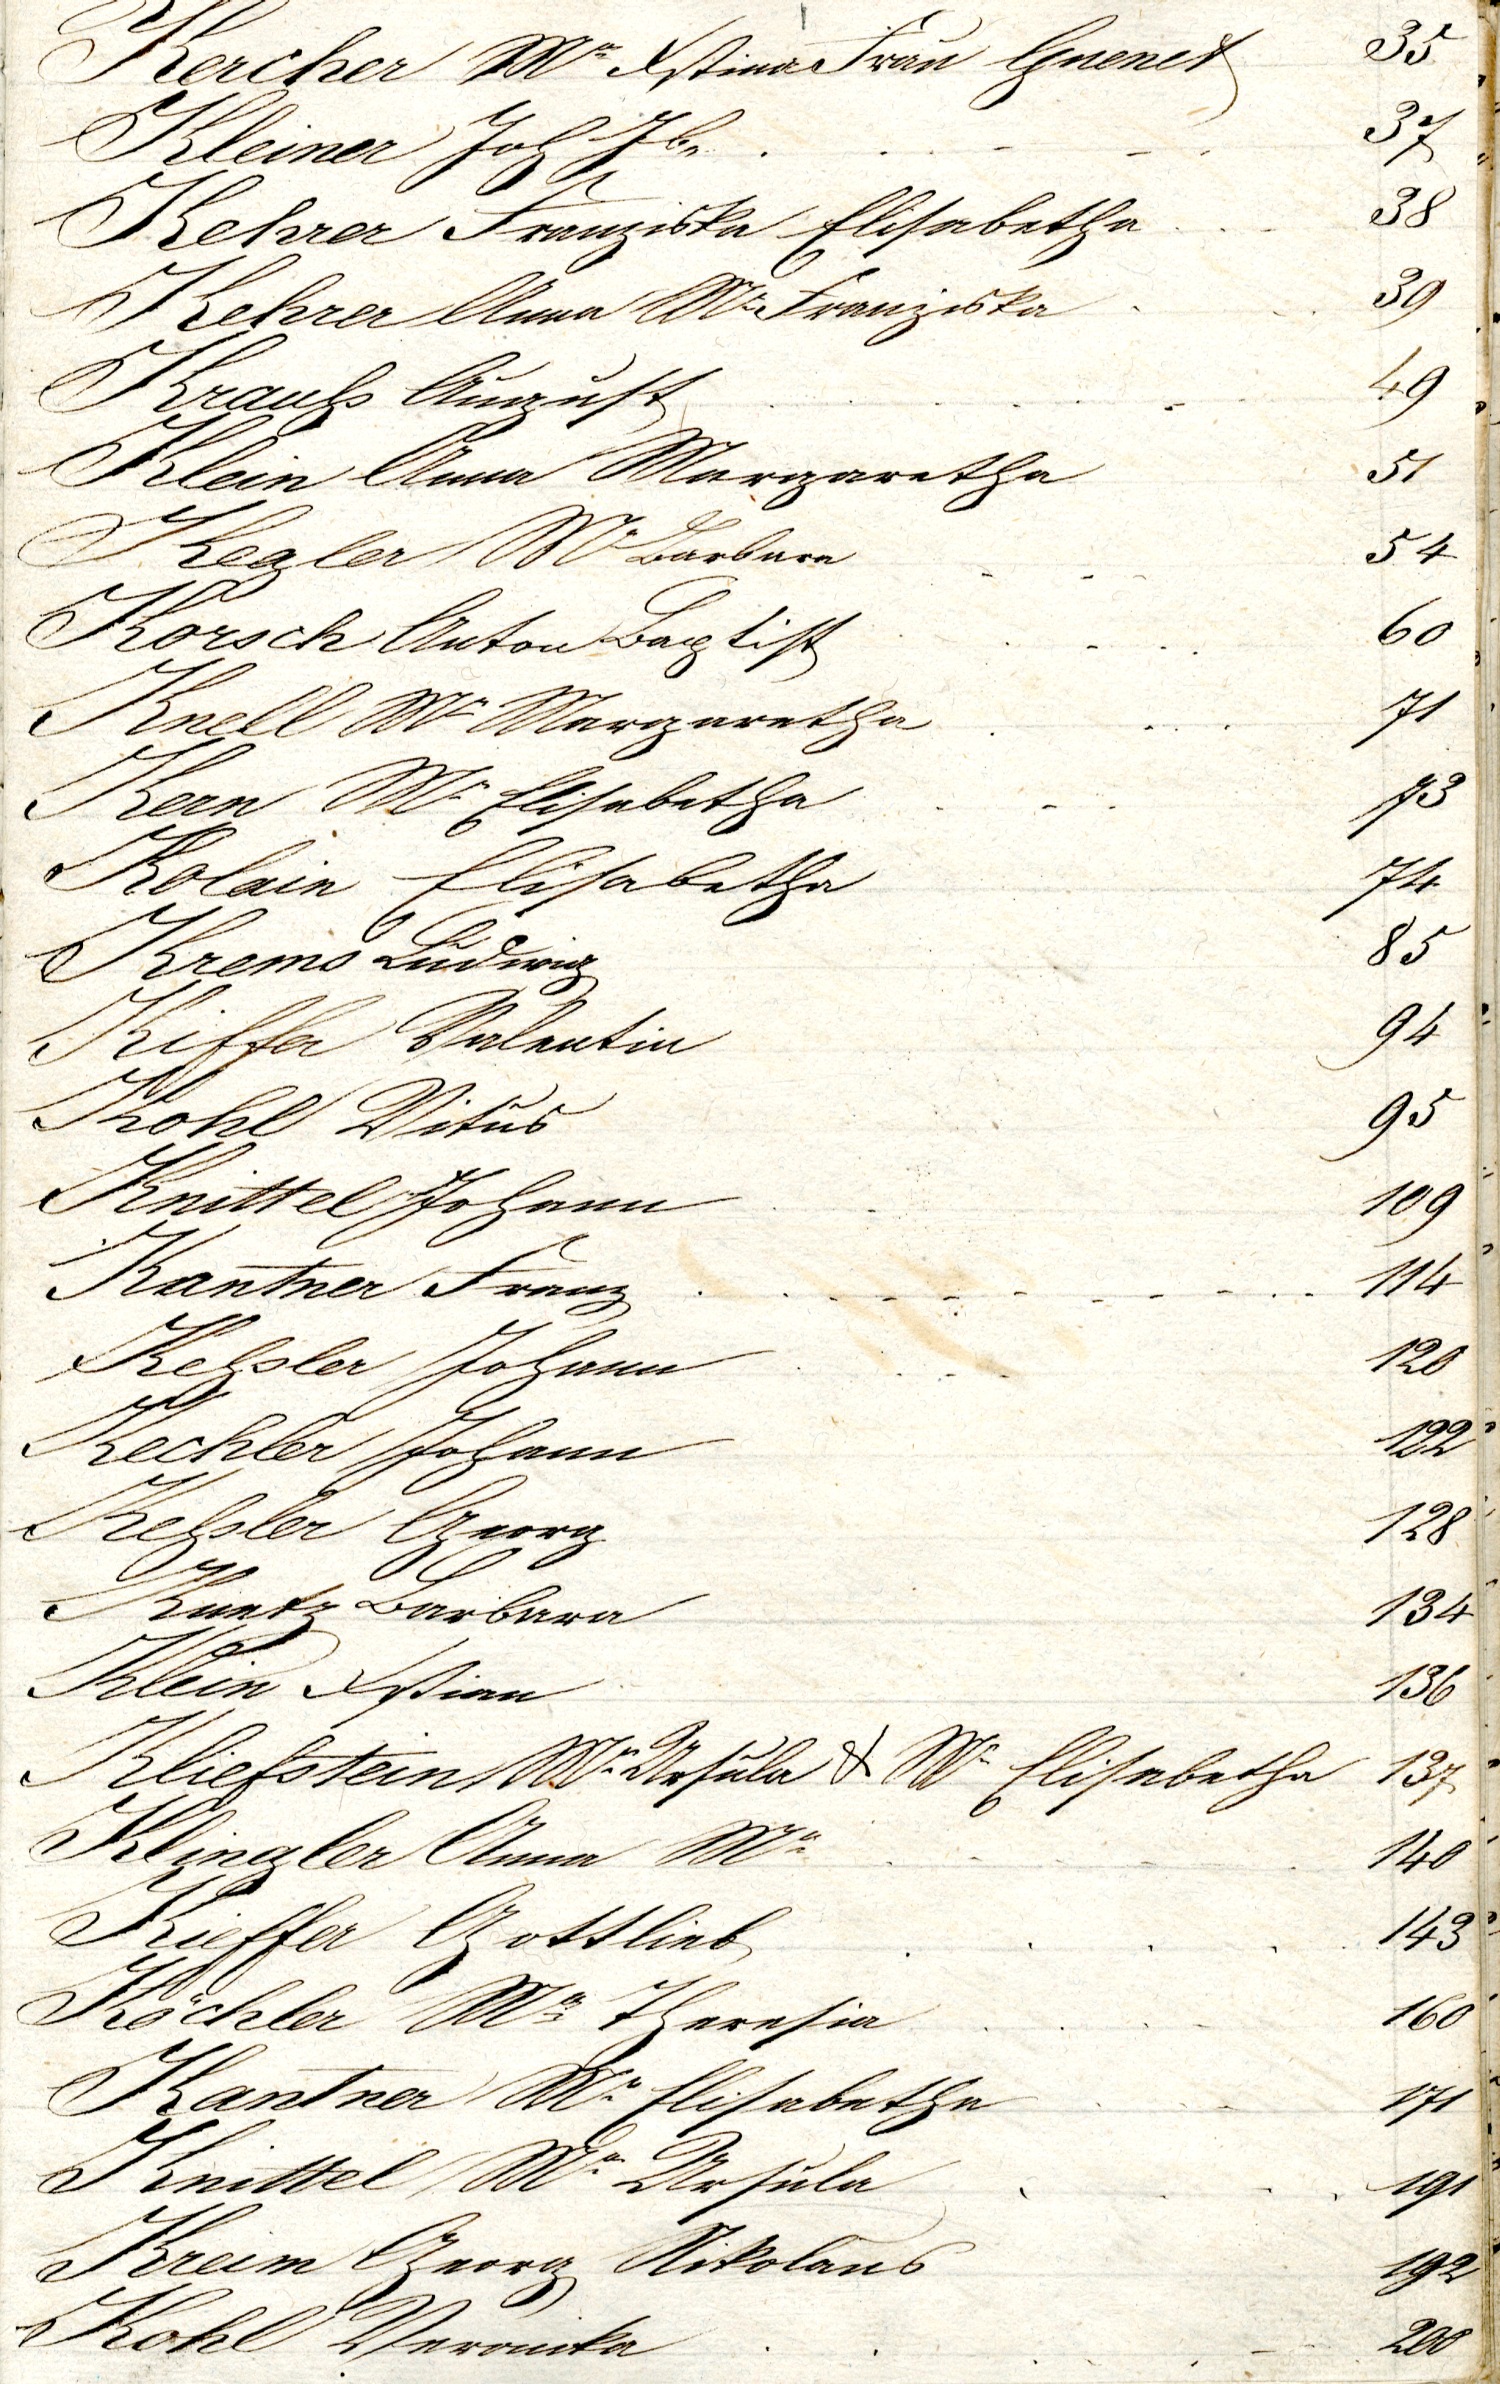 Kercher Mª Xstina Frau 35
Kleiner Joh Jb. 37
Kehrer Franziska Elisabetha 38
Kehrer Anna Mª Franziska 39
Krauß August 49
Klein Anna Margaretha 51
Kegler Mª Barbara 54
Korsch Anton Baptist 60
Knell Mª Margaretha 71
Kern Mª Elisabetha 73
Kolain Elisabetha 74
Krems Ludwig 85
Kiffer Valentin 94
Kohl Vitus 95
Knittel Johann 109
Kantner Franz 114
Keßler Johann 120
Kechler Johann 122
Keßler Georg 128
Kuntz Barbara 134
Klein Xstian 136
Kliefstein Mª Ursula & Mª Elisabetha 137
Klingler Anna Mª 140
Kieffer Gottlieb 143
Köchler Mª Theresia 160
Kantner Mª Elisabetha 171
Knittel Mª Ursula 191
Kreim Georg Nikolaus 192
Kohl Veronika 200